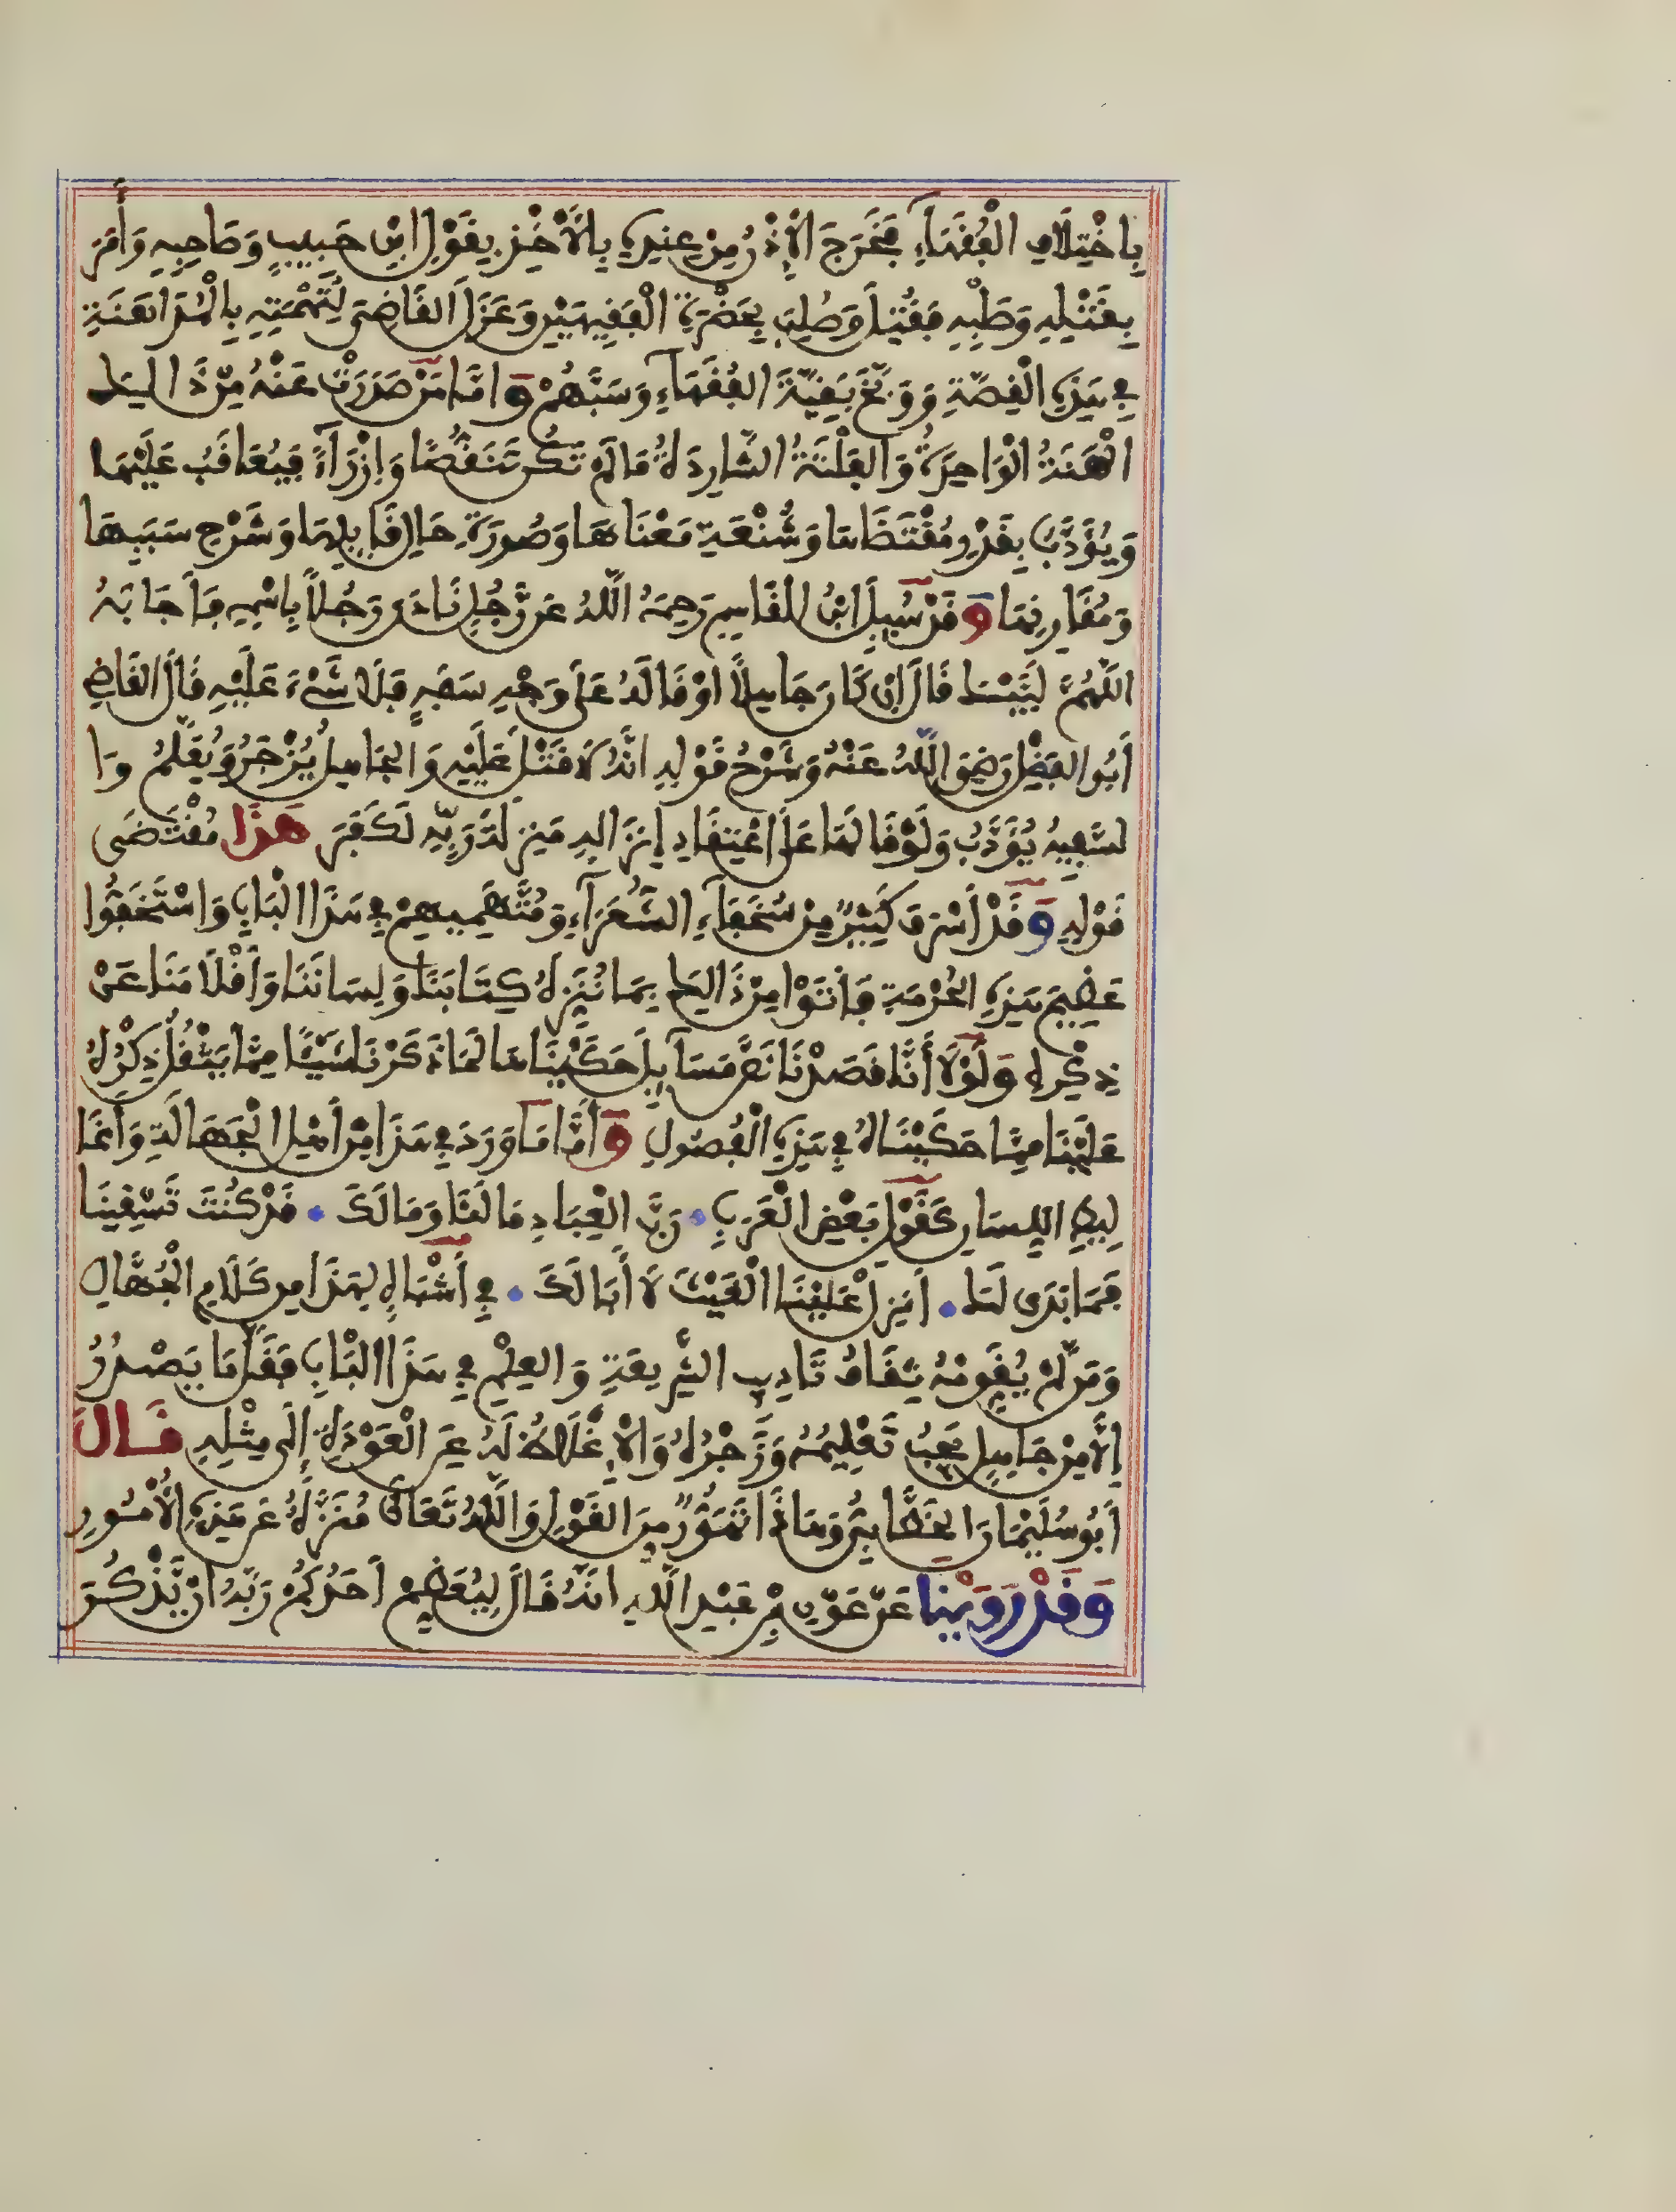 بِاخْتِلَافِ الْفُقَهَآءِ فَخَرَجَ الْإِذْنُ مِنْ عِندِهِ بِالْأَخْذِ بِقَوْلِ ابْنِ حَبِيبٍ وَصَاحِبِهِ وَأَمَرَ
بِقَتْلِهِ وَصَلْبِهِ فَقُتِلَ وَصُلِبَ بِحَضْرَةِ الْفَقِيهَيْنِ وَعَزَلَ الْقَاضِيَ لِتُهْمَتِهِ بِالْمُدَاهَنَةِ
فِي هَذِهِ الْقِصَّةِ وَوَبَّخَ بَقِيَّةَ الْفُقَهَآءِ وَسَبَّهُمْ وَامَّا مَنْ صَدَرَتْ عَنْهُ مِن ذَالِكَ
الْهَنَةُ الْوَاحِدَةُ وَالْفَلْتَةُ الشَّارِدَةُ مَا لَمْ تَكُن تَنَقُّصًا وَإِزْرَآءً فَيُعَاقَبُ عَلَيْهَا
وَيُؤَدَّبُ بِقَدْرِ مُقْتَضَاهَا وَشُنْعَةِ مَعْنَاهَا وَصُورَةِ حَالِ قَايِلِهَا وَشَرْحِ سَبَبِهَا
وَمُقَارِنِهَا وَقَدْ سُيِلَ ابْنُ الْقَاسِمِ رَحِمَهُ اللَّهُ عَن رَّجُلٍ نَادَى رَجُلاً بِاسْمِهِ فَأَجَابَهُ
اللَّهُمَّ لَبَّيْكَ قَالَ إِن كَانَ جَاهِلاً اوْ قَالَهُ عَلَى وَجْهِ سَفَهٍ فَلَا شَيْءَ عَلَيْهِ قَالَ الْقَاضِي
أَبُو الْفَضْلِ رَضِيَ اللَّهُ عَنْهُ وَشَرْحُ قَوْلِهِ انَّهُ لَا قَتْلَ عَلَيْهِ وَالْجَاهِلُ يُزْجَرُ وَيُعَلَّمُ وَا
لسَّفِيهُ يُؤَدَّبُ وَلَوْ قَالَهَا عَلَى اعْتِقَادِ إِنزَالِهِ مَنزِلَةَ رَبِّهِ لَكَفَرَ هَذَا مُقْتَضَى
قَوْلِهِ وَقَدْ أَسْرَفَ كَثِيرٌ مِنْ سُخَفَآءِ الشُّعَرَآءِ وَمُتَّهَمِيهِمْ فِي هَذَا الْبَابِ وَاسْتَخَفُّوا
عَظِيمَ هَذِهِ الْحُرْمَةِ فَأَتَوْا مِن ذَالِكَ بِمَا نُنَزِّهُ كِتَابَنَا وَلِسَانَنَا وَأَقْلَامَنَا عَنْ
ذِكْرِهِ وَلَوْلَا أَنَّا قَصَدْنَا نَصَّ مَسَآيِلَ حَكَيْنَاهَا لَمَا ذَكَرْنَا شَيْئًا مِمَّا يَثْقُلُ ذِكْرُهُ
عَلَيْنَا مِمَّا حَكَيْنَاهُ فِي هَذِهِ الْفُصُولِ وَأَمَّا مَا وَرَدَ فِي هَذَا مِنْ أَهْلِ الْجَهَالَةِ وَأَغَا
لِيطِ اللِّسَانِ كَقَوْلِ بَعْضِ الْعَرَبِ • رَبَّ الْعِبَادِ مَا لَنَا وَمَا لَكَ • قَدْ كُنْتَ تَسْقِينَا
فَمَا بَدَى لَكَ • أَنزِلْ عَلَيْنَا الْغَيْثَ لَا أَبَا لَكَ • فِي أَشْبَاهٍ لِهَذَا مِن كَلَامِ الْجُهَّالِ
وَمَن لَّمْ يُقَوِّمْهُ ثِقَافُ تَادِيبِ الشَّرِيعَةِ وَالْعِلْمِ فِي هَذَا الْبَابِ فَقَلَّ مَا يَصْدُرُ
إِلَّا مِنْ جَاهِلٍ يَجِبُ تَعْلِيمُهُ وَزَجْرُهُ وَالْإِغْلَاظُ لَهُ عَنِ الْعَوْدَةِ إِلَى مِثْلِهِ قَالَ
أَبُو سُلَيْمَانَ الْخَطَّابِيُّ وَهَاذَا تَهَوُّرٌ مِنَ الْقَوْلِ وَاللَّهُ تَعَالَى مُنَزَّهٌ عَن هَذِهِ الْأُمُورِ
وَقَدْ رَوَيْنَا عَن عَوْنِ بْنِ عَبْدِ اللَّهِ انَّهُ قَالَ لِيُعَظِّمْ أَحَدُكُمْ رَبَّهُ أَن يَّذْكُرَ